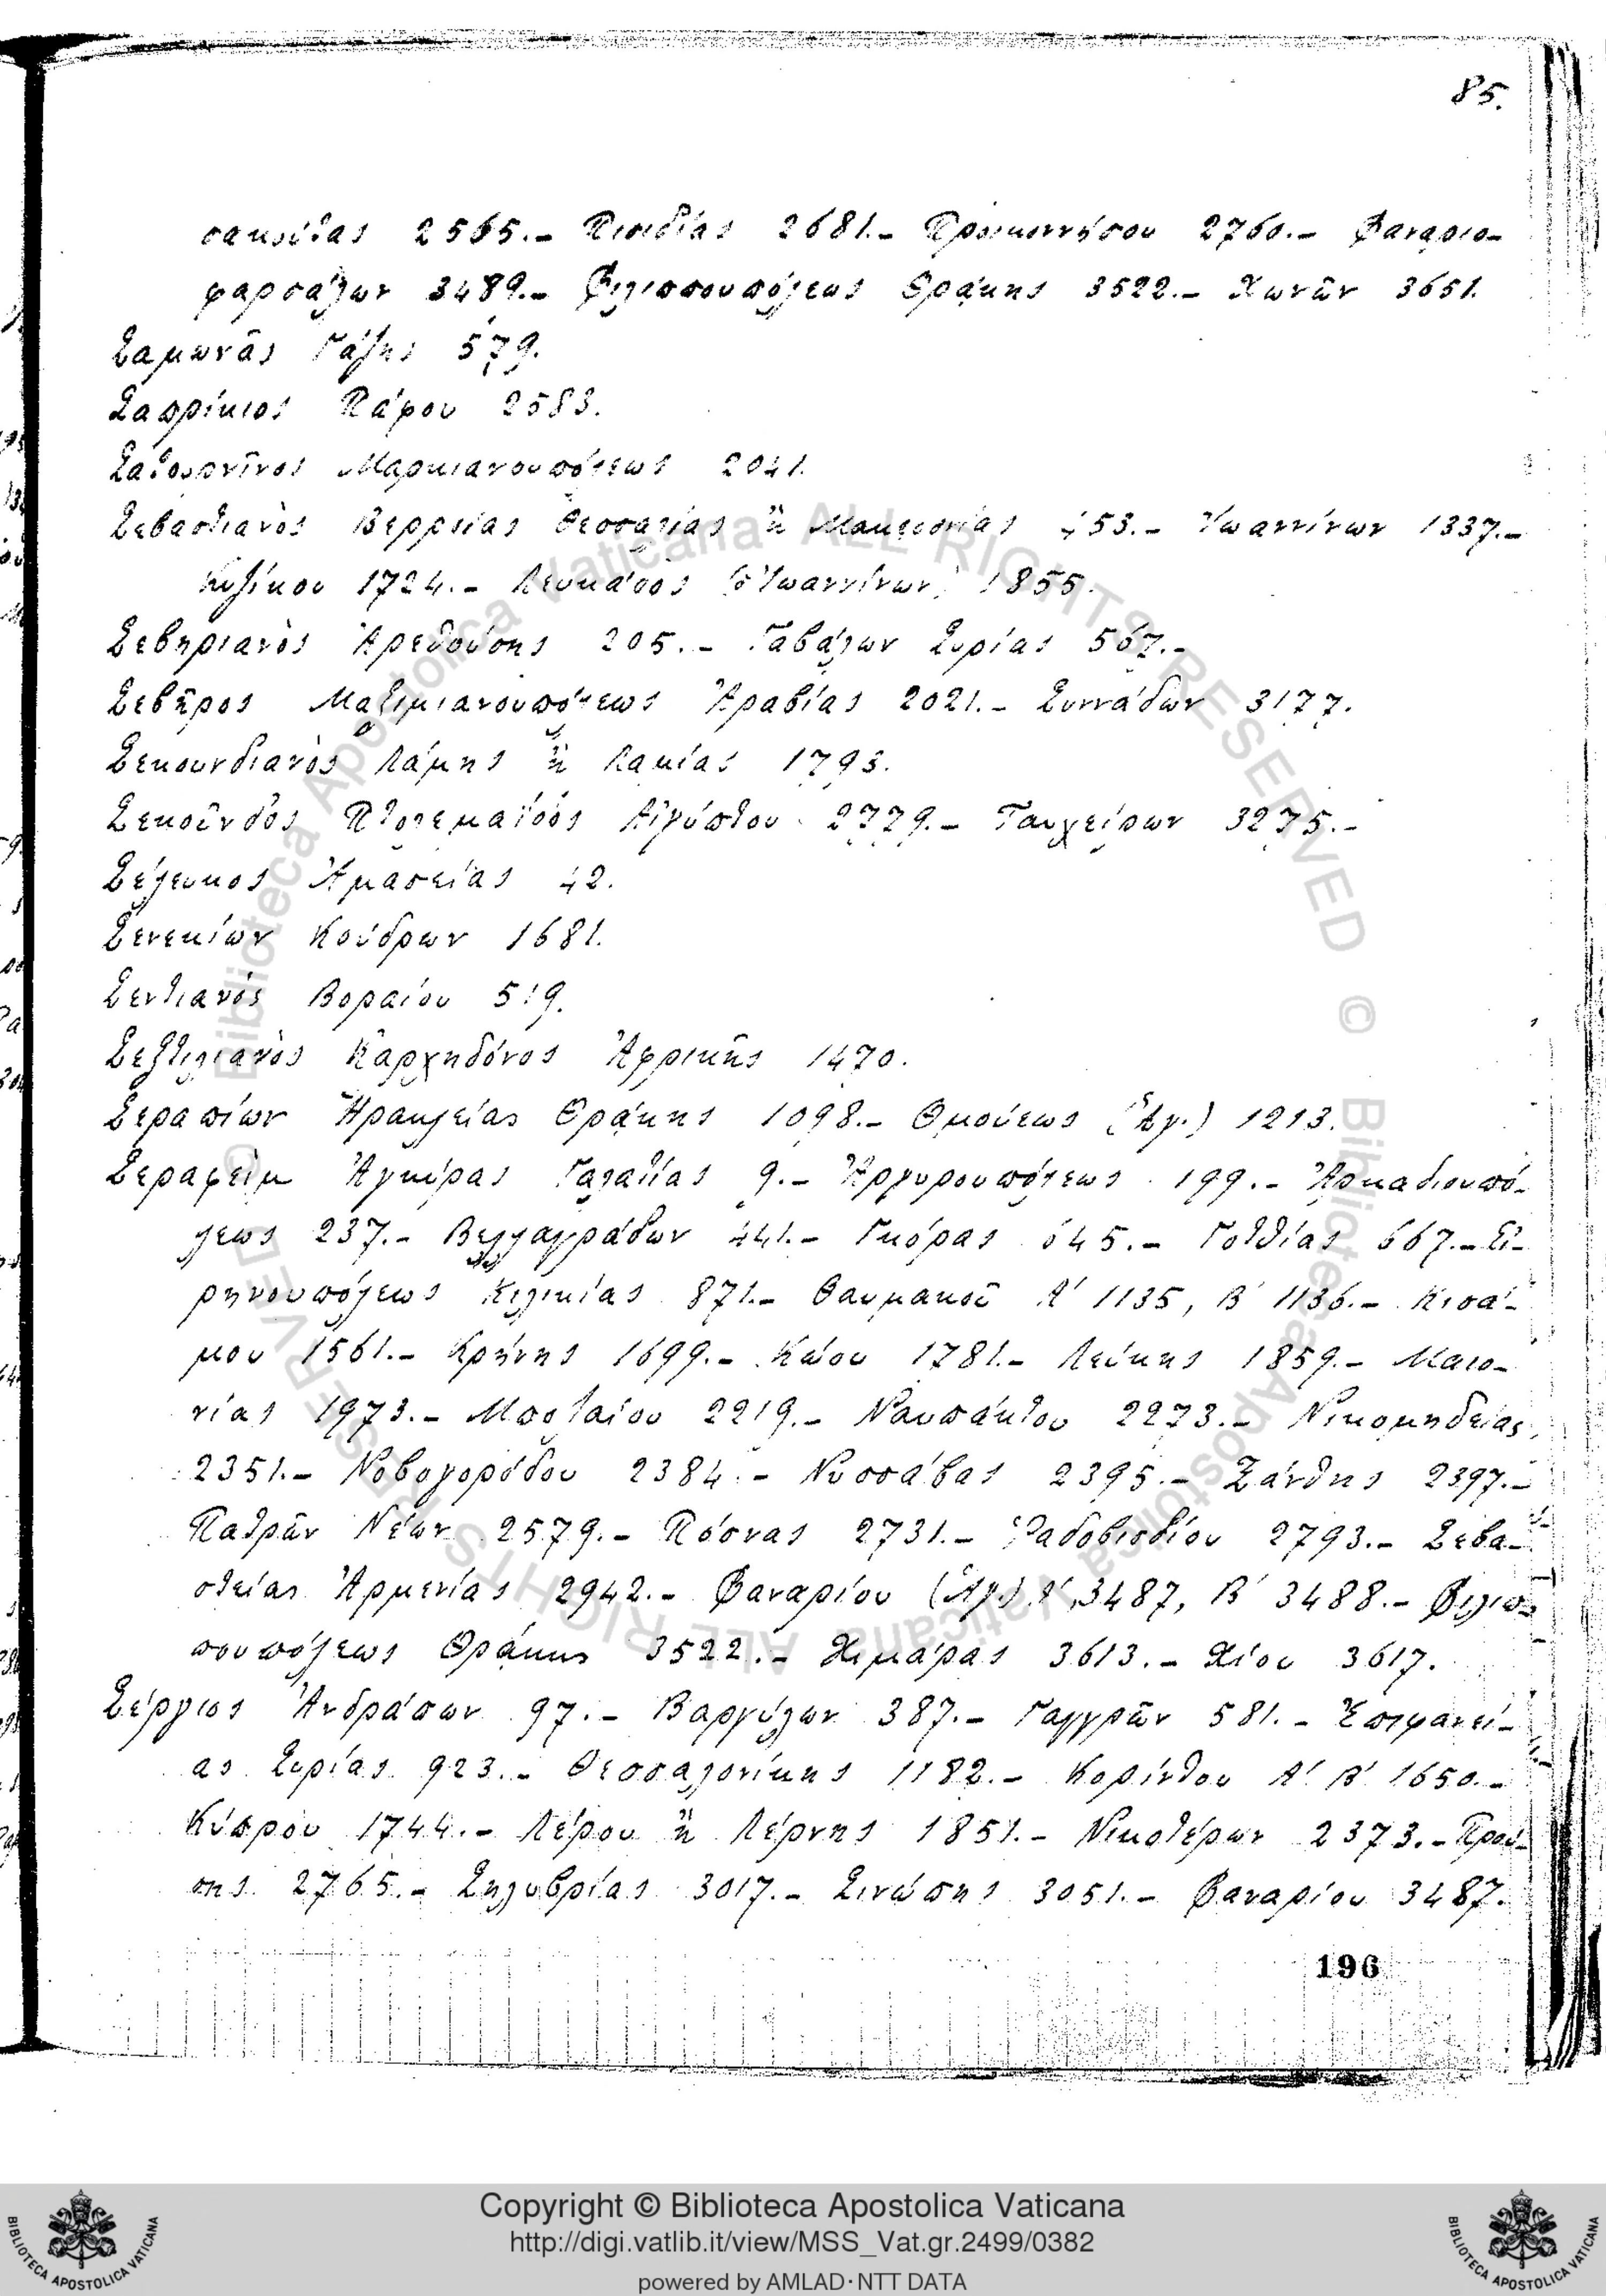 85.
σακιώτας 2565.- Πισιδίας 2681.- Προικοννήσου 2760.- Φαναριο-
φαρσάλων 3489.- Φιλιππουπόλεως Θράκης 3522.- Χωνῶν 3651.
Σαμωνᾶς Γάζης 579.
Σαπρίκιος Πάφου 2583.
Σατουρνῖνος Μαρκιανουπόλεως 2041.
Σεβαστιανὸς Βερροίας Θεσσαλίας ἢ Μακεδονίας 453.- Ἰωαννίνων 1337.-
Κυζίκου 1724.- Λευκάδος (ὁ Ἰωαννίνων) 1855.
Σεβηριανὸς Ἀρεθούσης 205.- Γαβάλων Συρίας 567.-
Σεβῆρος Μαξιμιανουπόλεως Ἀραβίας 2021.- Συννάδων 3177.
Σεκουνδιανὸς Λάμης ἢ Λαμίας 1793.
Σεκοῦνδος Πτολεμαΐδος Αἰγύπτου 2779.- Ταυχείρων 3275.-
Σέλευκος Ἀμασείας 42.
Σενεκίων Κούδρων 1681.
Σεντιανός Βοραίου 519.
Σεξτιλιανὸς Καρχηδόνος Ἀφρικῆς 1470.
Σεραπίων Ἡρακλείας Θράκης 1098.- Θμούεως (Ἁγ.) 1213.
Σεραφεὶμ Ἀγκύρας Γαλατίας 9.- Ἀργυρουπόλεως 199.- Ἀρκαδιουπό-
λεως 237.- Βελλαγράδων 441.- Γκόρας 645.- Γοτθίας 667.- Εἰ-
ρηνουπόλεως Κιλικίας 871.- Θαυμακοῦ Α΄ 1135, Β΄ 1136.- Κισά-
μου 1561.- Κρήνης 1699.- Κώου 1781.- Λεύκης 1859.- Μαιο-
νίας 1973.- Μποσταίου 2219.- Ναυπάκτου 2273.- Νικομηδείας
2351.- Νοβογορόδου 2384.- Νυσσάβας 2395.- Ξάνθης 2397.-
Πατρῶν Νέων 2579.- Πόσνας 2731.- Ῥαδοβισδίου 2793.- Σεβα-
στείας Ἀρμενίας 2942.- Φαναρίου (Ἁγ.) Α΄ 3487, Β΄ 3488.- Φιλιπ-
πουπόλεως Θράκης 3522.- Χιμάρας 3613.- Χίου 3617.
Σέργιος Ἀνδράσων 97.- Βαργύλων 387.- Γαγγρῶν 581.- Ἐπιφανεί-
ας Συρίας 923.- Θεσσαλονίκης 1182.- Κορίνθου Α΄ Β΄ 1650.-
Κύπρου 1744.- Λέρου ἢ Λέρνης 1851.- Νικοτέρων 2373.- Πρού-
σης 2765.- Σηλυβρίας 3017.- Σινώπης 3051.- Φαναρίου 3487.
196
Copyright © Biblioteca Apostolica Vaticana
http://digi.vatlib.it/view/MSS_Vat.gr.2499/0382
powered by AMLAD·NTT DATA